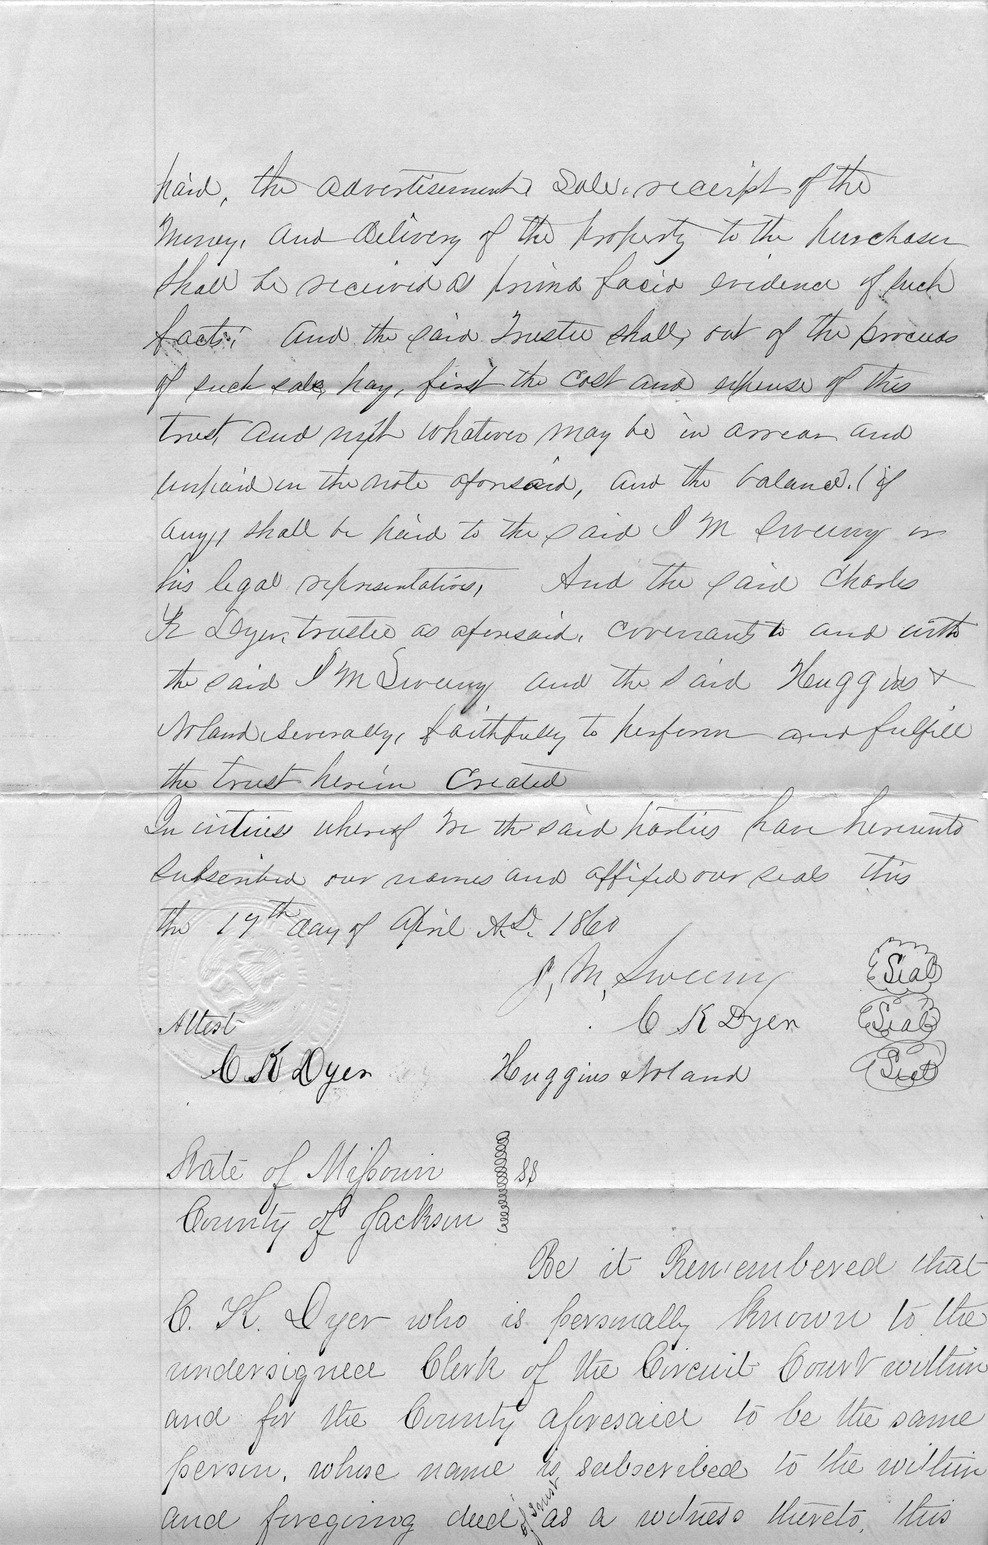 paid, the advertisement, Sale, receipt of the
Money, and delivery of the property to the purchaser
shall be received as prima facia evidence of such
facts; And the said Trustee shall, out of the proceeds
of such sale, pay, first the cost and expense of this
trust, and next whatever may be in arrear and
unpaid on the note aforesaid, and the balance, (if
any,) shall be paid to the said J M Sweeny or
his legal representatives, And the said Charles
K Dyer, trustee as aforesaid, covenants to and with
the said J M Sweeny and the said Huggins &
Noland severally, faithfully to perform and fulfill
the trust herein Created
In witness whereof We the said parties have hereunto
Subscribed our names and affixed our seals this
the 17th day of April A.D. 1860
J. M. Sweeny Seal
C K Dyer Seal
Attest
C K Dyer Huggins & Noland Seal
State of Missouri
ss
County of Jackson
Be it Remembered that
C. K. Dyer who is personally known to the
undersigned Clerk of the Circuit Court within
and for the County aforesaid to be the same
person, whose name is subscribed to the within
and foregoing deed of trust as a witness thereto, this